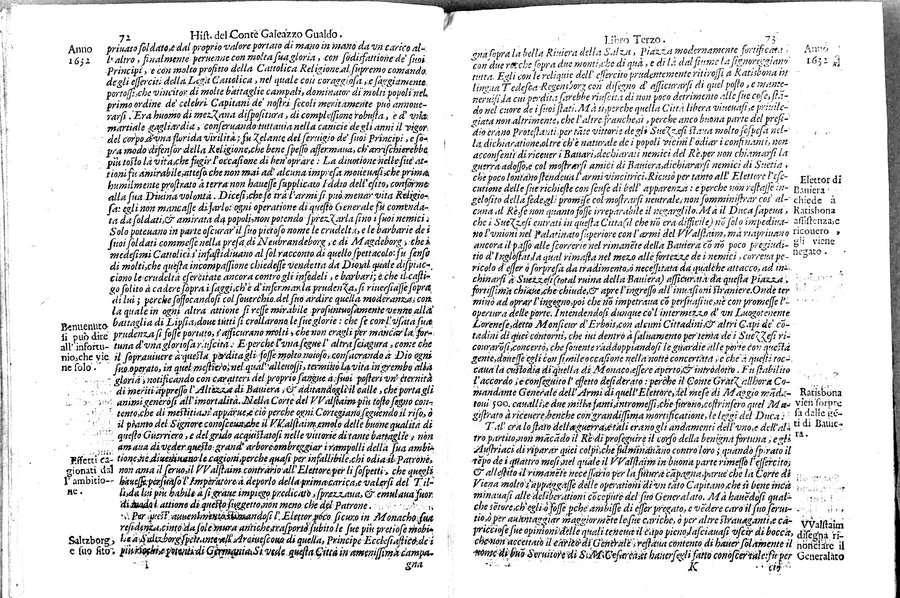 72 Hist. del Conte Galeazzo Gualdo.
Anno
1632
privato soldato, e dal proprio valore portato di mano in mano da un carico al-
l'altro, finalmente peruenne con molta sua gloria, con sodisfattione de' suoi
Principi, e con molto profitto della Cattolica Religione al supremo comando
degli esserciti della Lega Cattolica, nel quale così coraggioso, e saggiamente
portossi, che vincitor di molte battaglie campali, dominator di molti popoli nel
primo ordine de' celebri Capitani de' nostri secoli meritamente può annoue-
rarsi. Era huomo di mezzana dispositura, di complessione robusta, e d'vna
martiale gagliardia, conseruando tuttauia nella canicie degli anni il vigor
del corpo, & vna florida virilità; fu Zelante del seruigio de' suoi Principi, e so-
pra modo difensor della Religione, che bene spesso affermaua, ch'arrischierebbe
più tosto la vita, che fugir l'occasione di ben'oprare: La diuotione nelle sue at-
tioni fu amirabile, atteso che non mai ad alcuna impresa moueuasi, che prima
humilmente prostrato à terra non hauesse supplicato Iddio dell'esito, conforme
alla sua Diuina volontà. Dicesi, che se trà l'armi si può menar vita Religio-
sa: egli non mancasse di farlo: ogni operatione di questo Generale fu comenda-
ta da soldati, & amirata da popoli, non potendo sprezzarla sino i suoi nemici.
Solo poteuano in parte oscurar il suo pietoso nome le crudeltà, e le barbarie de i
suoi soldati commesse nella presa di Neubrandeborg, e di Magdeborg, che i
medesimi Cattolici s'infastidiuano al sol racconto di quello spettacolo: fu senso
di molti, che questa incompassione chiedesse vendetta da Dio, al quale dispiac-
ciono le crudeltà esercitate ancora contro gli infedeli, e barbari; e che il casti-
go solito à cadere sopra i saggi, ch'è d'infermar la prudenza, si riuersasse sopra
di lui; perche soffocandosi col souerchio del suo ardire quella moderanza, con
la quale in ogni altra attione si resse mirabile profuntuosamente venne alla
battaglia di Lipsia, doue tutti si crollarono le sue glorie: che se con l'vsata sua
prudenza si fosse portato, s'assentì da molti, che non hauerebbe reso infortu-
nata d'vna gloriosa riuscita: E perche l'vna segue l'altra sciagura, come che
il soprauiuere à questa perdita gli fosse molto noioso, consacrando à Dio ogni
suo operato, in quel mestiero, nel qual'alleuossi, terminò la vita in grembo alla
gloria, notificando con caratteri del proprio sangue à suoi posteri vn'eternità
di meriti appresso l'Altezza di Bauiera, & additandogli il calle, che porta gli
animi generosi all'imortalità. Nella Corte del VValstaim più tosto segno con-
tento, che di mestitia n'apparue, e ciò perche ogni Cortegiano seguendo il riso, ò
il pianto del Signore conosceua, che il VValstaim, emolo delle buone qualità di
questo Guerriero, e del grido acquistatosi nelle vittorie di tante battaglie, non
amaua di veder questo grand'arbore ombreggiar i rampolli della sua ambi-
tione, ne diuolgauano le cagioni, perche quasi per infallibile, chi odia il Patrone,
non ama il seruo, il VValstaim contrario all'Elettore, per li sospetti, che quegli
hauesse persuaso l'Imperatore à deporlo della prima carica, e valersi del Til-
li, da lui più habile à si graue impiego predicato, sprezzaua, & emulaua fuor
di modo l'attione di questo suggetto, non meno che del Patrone.
Per quest'auuenimento stimandosi l'Elettor poco sicuro in Monacho sua
residenza, cinta da sole mura antiche, trasportò subito le sue più pretiose mobi-
lia à Salzborg spettante all'Arciuescouo di quella, Principe Ecclesiastico, de i
più ricchi, e potenti di Germania. Si vede questa Città in amenissima campa-
gna
Benuenuto
si può dite
all'infortu-
nio, che vie
ne solo.
Effetti ca-
gionati dal
l'ambitio-
ne.
Salzborg,
e suo sito.
Libro Terzo. 73
Anno
1632
gna sopra la bella Riviera della Salza, Piazza modernamente fortificata,
con due rocche sopra due monti, che di quà, e di là dal fiume la signoreggiano
tutta. Egli con le reliquie dell'essercito prudentemente ritirossi a Ratisbona in
lingua Tedesca Regensborg con disegno d'assicurarsi di quel posto, e mante-
neruisi la cui perdita sarebbe riuscita di non poco detrimento alle sue cose, stan-
do nel cuore de i suoi stati. Mà perche quella Città libera viueuasi, e priuile-
giata non altrimente, che l'altre franche, e perche anco buona parte del presi-
dio erano Protestanti, per tante vittorie de gli Suezzesi staua molto sospesa nel-
la dichiaratione, oltre ch'è naturale de i popoli vicini l'odiar i confinanti, non
acconsentì di riceuer i Bauari, dechiarati nemici del Rè per non chiamarsi la
guerra addosso, e col mostrarsi amici di Bauiera, dechiararsi nemici di Suetia,
che poco lontano stendeua l'armi vincitrici. Ricusò per tanto all'Elettore l'ese-
cutione delle sue richieste con scuse di bell'apparenza: e perche non restasse in-
gelosito della fede, gli promise col mostrarsi neutrale, non somministrar cos'al-
cuna al Rè, se non quanto fosse irreparabile il negarglisi. Mà il Duca sapeua,
che i Suezzesi entrati in questa Città (il che nõ era difficile) nõ solo impediua-
no l'vnioni nel Palatinato superior con l'armi del VValstaim, mà riapriuano
ancora il passo alle scorrerie nel rimanẽte della Bauiera cõ nõ poco pregiuditi-
o d'Inglostat, la qual rimasta nel mezo alle fortezze de i nemici, correua pe-
ricolo d'esser ò sorpresa da tradimento, ò necessitata da qualche attacco, ad in-
chinarsi à Suezzesi (total ruina della Bauiera) assicurata da questa Piazza,
fortissima chiaue, che chiude, & apre l'ingresso all'inuasioni straniere. Onde ter-
minò ad oprar l'ingegno, poi che nõ impetraua cõ persuasiue, nè con promesse l'
apertura delle porte. Intendendosi dunque col'intermezo d'vn Luogotenente
Lorenese, detto Monsieur d'Erbois, con alcuni Cittadini, & altri Capi de' cõ-
tadini di quei contorni, che iui dentro à saluamento per tema de i Suezzesi ri-
courati, concertò, che souente raddoppiandosi le guardie alle porte con questa
gente, douesse egli con simile occasione nella notte concertata, e che à questi toc-
caua la custodia di quella di Monaco, essere aperto, & introdotto. Fu stabilito
l'accordo, e conseguito l'effetto desiderato: perche il Conte Gratz allhora Co-
mandante Generale dell'Armi di quell'Elettore, nel mese di Maggio mãda-
toui 500. caualli, e due mila fanti, intromessi, che furono, costrinsero quel Ma-
gistrato à riceuere benche con grandissima mortificatione, le leggi del Duca.
Tal'era lo stato della guerra, e tali erano gli andamenti dell'vno, e dell'al-
tro partito, non mãcãdo il Rè di proseguire il corso della benigna fortuna, e gli
Austriaci di riparar quei colpi, che fulminauano contro loro; quando spirato il
tẽpo de i quattro mesi, nel quale il VValstaim in buona parte rimesso l'essercito,
& allestito il rimanẽte necessario per la futura cãpagna, parue che la Corte di
Viena molto s'appagasse delle operationi di vn tãto Capitano, che si bene inca-
minauasi alle deliberationi cõcepute del suo Generalato. Mà hauẽdosi qual-
che sẽtore, ch'egli ò fosse pche ambisse di esser pregato, e vẽdere caro il suo serui-
tio, ò per auuantaggiar maggiormẽte le sue cariche, ò per altre strauaganti, e ca-
pricciose sue opinioni, delle quali tenendone il capo pieno, lasciauasi vscir di bocca,
che non accettato il carico di Generale, restaua contento di hauer solamente il
nome di buõ Seruitore di S. M. Cesarea, et hauer segli fatto conoscer tale: su per
K ciò
Elettor di
Bauiera
chiede à
Ratisbona
assistenza, e
ricouero,
gli viene
negato.
Ratisbona
vien sorpre
sa dalle gẽ-
ti di Bauie-
ra.
VValstaim
disegna ri-
nonciare il
Generalato